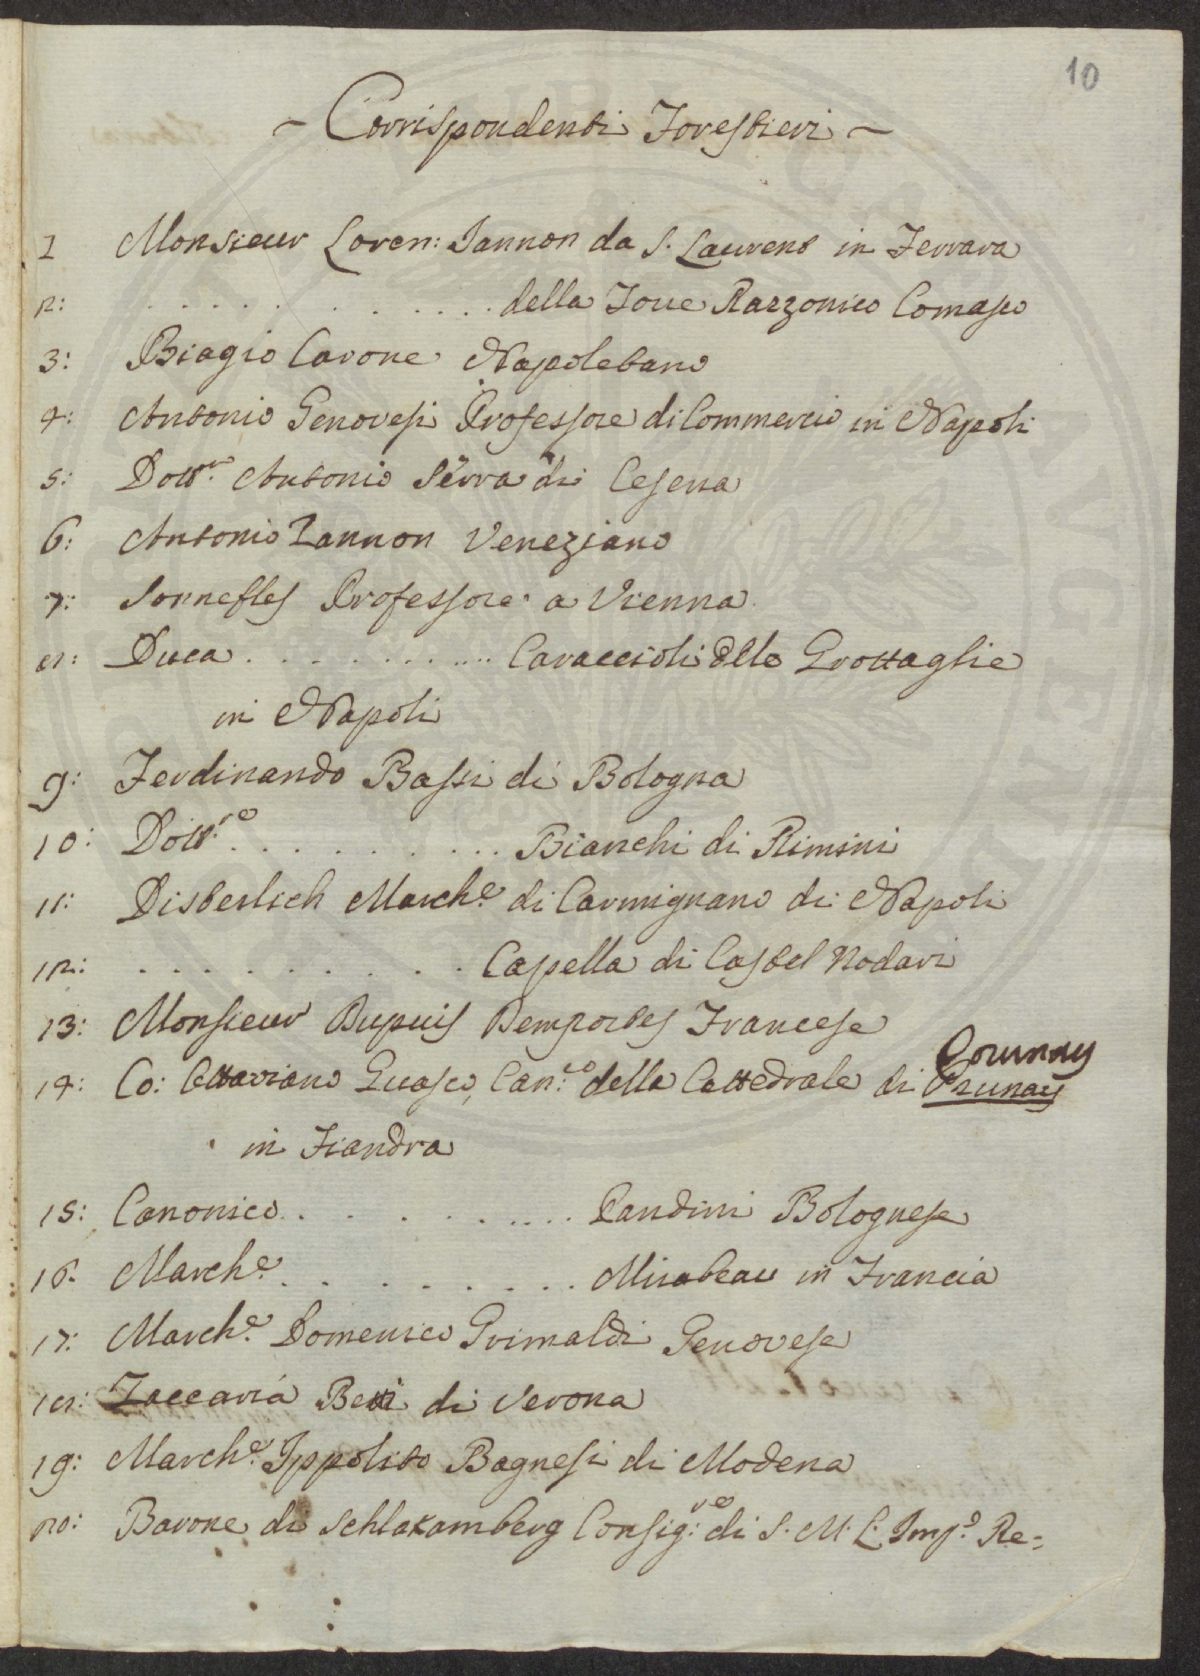 10
~ Corrispondenti Forestieri ~
1 Monsieur Loren: Iannon da S. Laurent in Ferrara
2: . . . . . . . . . . . della Torre Razzonico Comasco
3: Biagio Carone Napoletano
4: Antonio Genovesi Professore di Commercio in Napoli
5: Dott.re Antonio Serra di Cesena
6: Antonio Zannon Veneziano
7: Sonnefles Professore a Vienna
8: Duca . . . . . . . . . . . Caraccioli delle Grottaglie
in Napoli
9: Ferdinando Bassi di Bologna
10: Dott.re . . . . . . . . . . Bianchi di Rimini
11: Disterlich March.e di Carmignano di Napoli
12: . . . . . . . . . . Capella di Castel Nodari
13: Monsieur Dupuis Demportes Francese
14: Co: Ottaviano Guasco, Can.co della Cattedrale di Prunay Tournay
in Fiandra
15: Canonico . . . . . . . . . . Pandini Bolognese
16. March.e . . . . . . . . . . Mirabeau in Francia
17: March.e Domenico Grimaldi Genovese
18: Zaccaria Betti di Verona
19: March.e Ippolito Bagnesi di Modena
20: Barone di Schlaxamberg Consig:re di S. M. L' Imp.e Re=